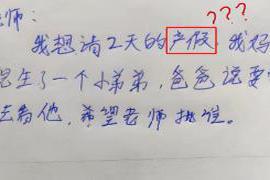 师：
???
我想请2天的产假，我妈
生了一个小弟弟，爸爸说要
去看他，希望老师批准。